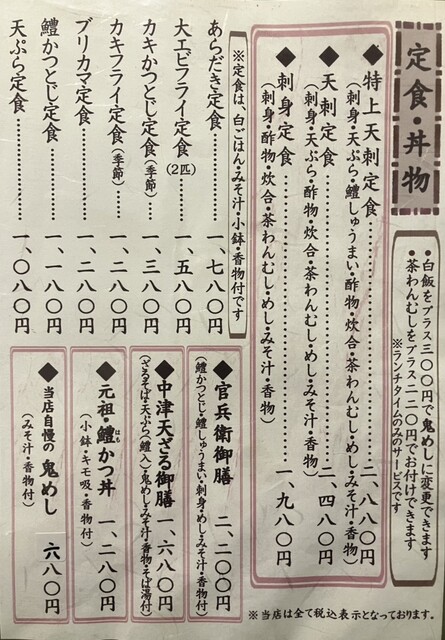 定食・丼物
・白飯をプラス三〇〇円で鬼めしに変更できます
・茶わんむしをプラス二二〇円でお付けできます
※ランチタイムのみのサービスです
◆特上天刺定食……二、八八〇円
(刺身・天ぷら・鱧しゅうまい・酢物・炊合・茶わんむし・めし・みそ汁・香物)
◆天刺定食……二、四八〇円
(刺身・天ぷら・酢物・炊合・茶わんむし・めし・みそ汁・香物)
◆刺身定食……一、九八〇円
(刺身・酢物・炊合・茶わんむし・めし・みそ汁・香物)
※定食は、白ごはん・みそ汁・小鉢・香物付です
あらだき定食……一、七八〇円
大エビフライ定食(2匹)……一、五八〇円
カキかつとじ定食(季節)……一、三八〇円
カキフライ定食(季節)……一、二八〇円
ブリカマ定食……一、二八〇円
鱧かつとじ定食……一、一八〇円
天ぷら定食……一、〇八〇円
◆官兵衛御膳 二、二〇〇円
(鱧かつとじ・鱧しゅうまい・刺身・めし・みそ汁・香物付)
◆中津天ざる御膳 一、六八〇円
(ざるそば・天ぷら(鱧入)・鬼めし・みそ汁・香物・そば湯付)
◆元祖鱧かつ丼 一、二八〇円
はも
(小鉢・キモ吸・香物付)
◆当店自慢の鬼めし 六八〇円
(みそ汁・香物付)
※当店は全て税込表示となっております。